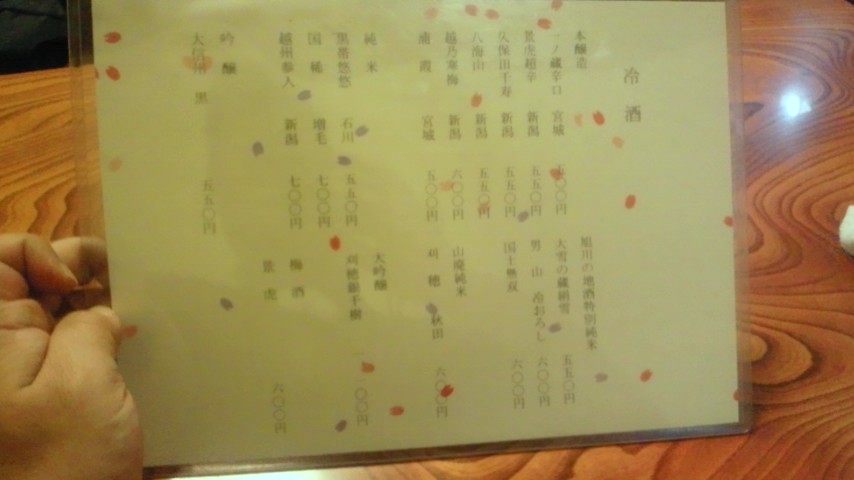 冷酒
本醸造
一ノ蔵辛口 宮城 五〇〇円
景虎超辛 新潟 五五〇円
久保田千寿 新潟 五五〇円
八海山 新潟 五五〇円
越乃寒梅 新潟 六〇〇円
浦霞 宮城 五〇〇円
純米
黒帯悠悠 石川 五五〇円
国稀 増毛 七〇〇円
越州参人 新潟 七〇〇円
吟醸
大信州 黒 五五〇円
旭川の地酒特別純米
大雪の蔵絹雪 五五〇円
男山 冷おろし 六〇〇円
国士無双 六〇〇円
山廃純米
刈穂 秋田 六〇〇円
大吟醸
刈穂銀千樹 一一〇〇円
梅酒
景虎 六〇〇円